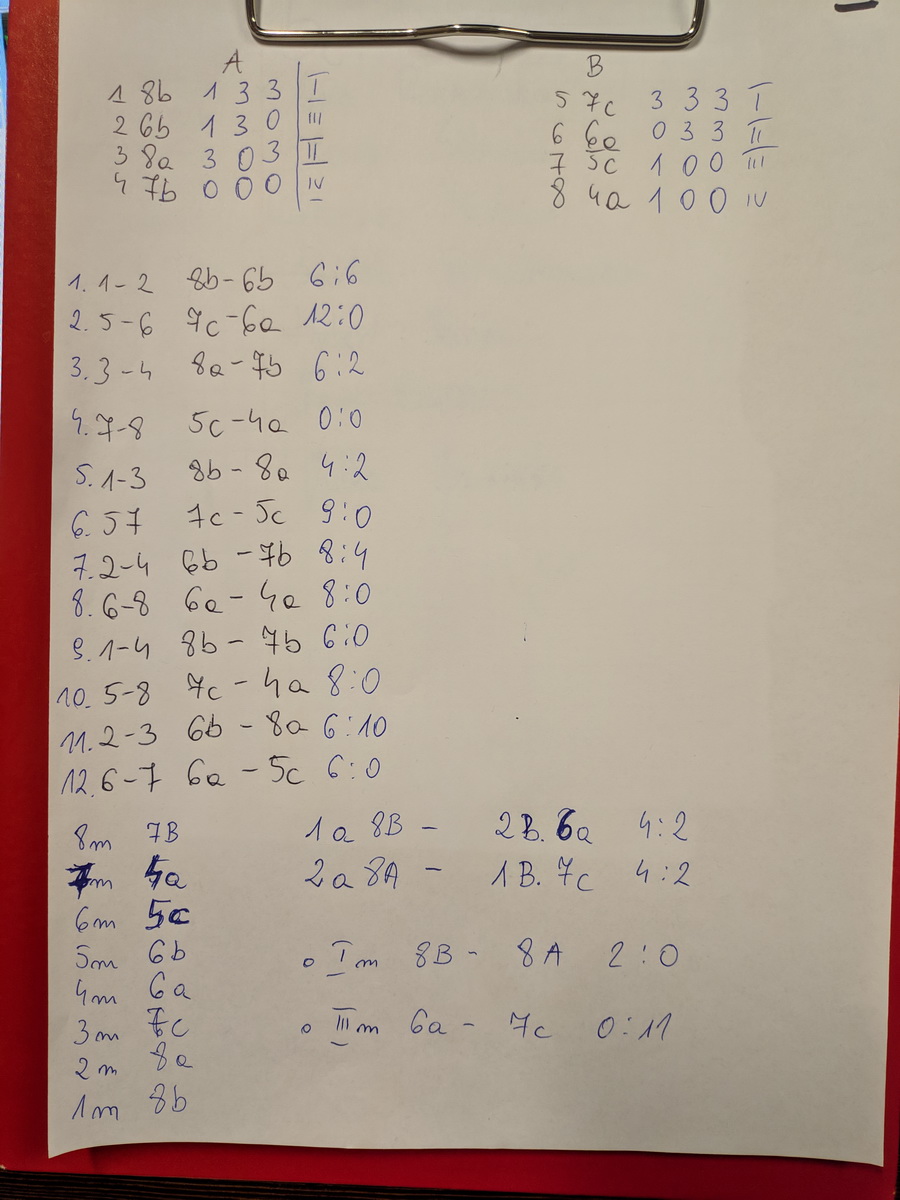 A
1 8b 1 3 3 I
2 6b 1 3 0 III
3 8a 3 0 3 II
4 7b 0 0 0 IV
B
5 7c 3 3 3 I
6 6a 0 3 3 II
7 5c 1 0 0 III
8 4a 1 0 0 IV
1. 1-2 8b-6b 6:6
2. 5-6 7c-6a 12:0
3. 3-4 8a-7b 6:2
4. 7-8 5c-4a 0:0
5. 1-3 8b-8a 4:2
6. 57 7c-5c 9:0
7. 2-4 6b-7b 8:4
8. 6-8 6a-4a 8:0
9. 1-4 8b-7b 6:0
10. 5-8 7c-4a 8:0
11. 2-3 6b-8a 6:10
12. 6-7 6a-5c 6:0
8m 7B
7m 4a
6m 5c
5m 6b
4m 6a
3m 7c
2m 8a
1m 8b
1a 8B - 2B. 6a 4:2
2a 8A - 1B. 7c 4:2
o I m 8B - 8A 2:0
o III m 6a - 7c 0:11